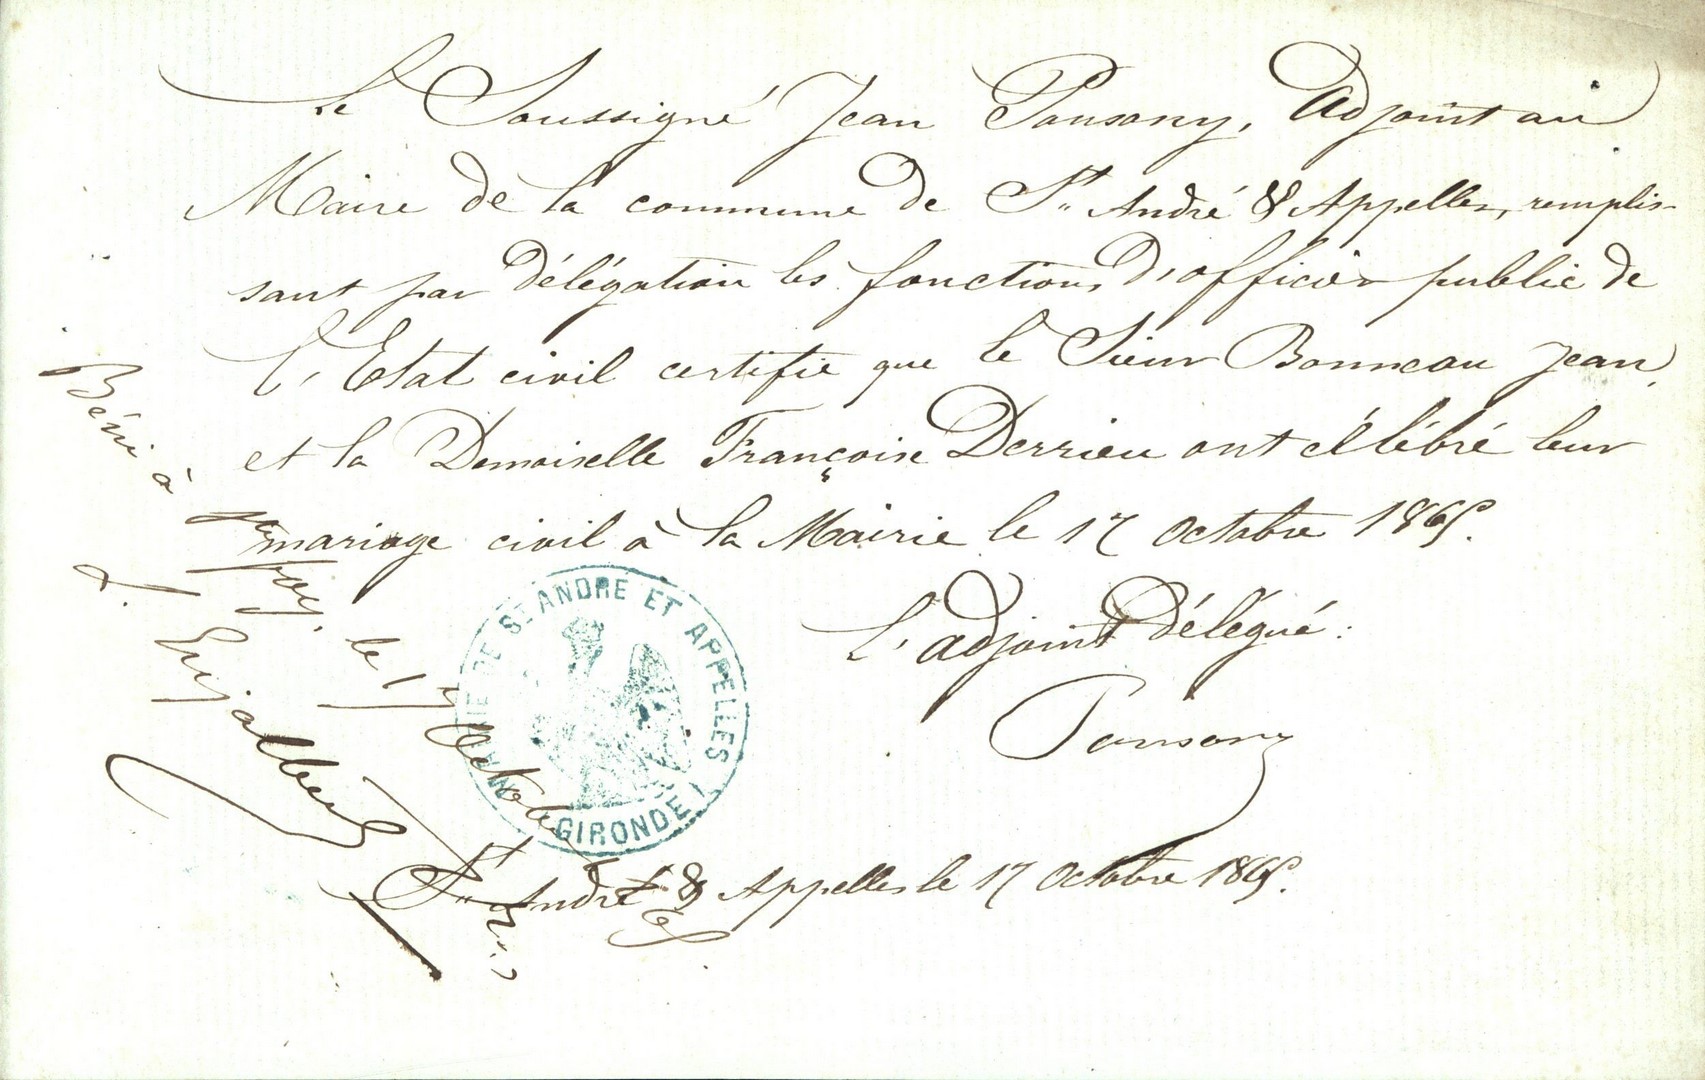 Le Soussigné Jean Ponsony, adjoint au
Maire de la commune de St. André & Appelles, remplis-
sant par délégation les fonctions d'officier public de
l'Etat civil certifie que le Sieur Bonneau Jean,
et la Demoiselle Françoise Derrieu ont célébré leur
mariage civil à la Mairie le 17 Octobre 1865.
L'adjoint Délégué:
Ponsony
St. André & Appelles le 17 Octobre 1865.
MAIRIE DE ST ANDRE ET APPELLES
(GIRONDE)
Béni à Ste foy, le 17 Octobre 1865.
J. Enjalbert